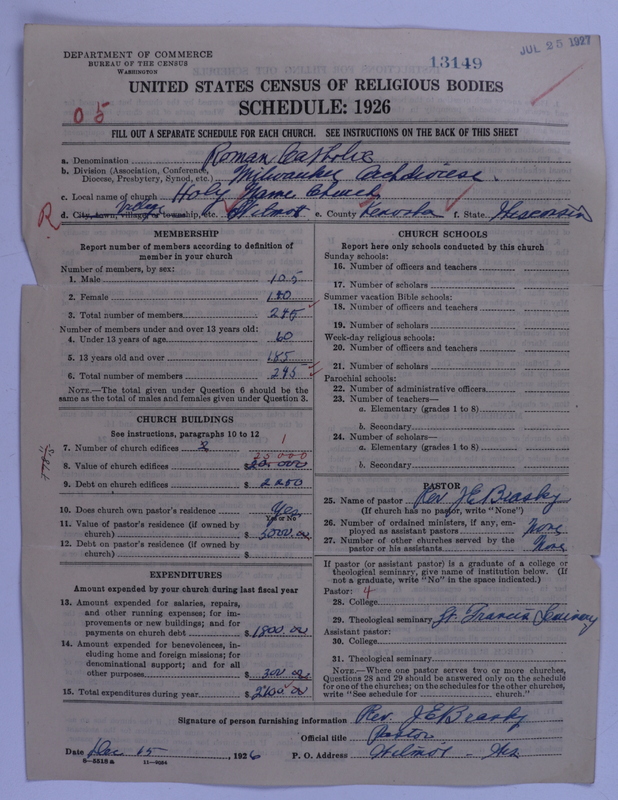 DEPARTMENT OF COMMERCE
BUREAU OF THE CENSUS
WASHINGTON
13149
JUL 25 1927
UNITED STATES CENSUS OF RELIGIOUS BODIES
SCHEDULE: 1926
0 5
FILL OUT A SEPARATE SCHEDULE FOR EACH CHURCH. SEE INSTRUCTIONS ON THE BACK OF THIS SHEET
a. Denomination Roman Catholic
b. Division (Association, Conference, Diocese, Presbytery, Synod, etc.) Milwaukee Archdiocese.
c. Local name of church Holy Name Church
R d. City, town, village, or township, etc. Wilmot e. County Kenosha f. State Wisconsin
MEMBERSHIP
Report number of members according to definition of
member in your church
Number of members, by sex:
1. Male 105
2. Female 140
3. Total number of members 245
Number of members under and over 13 years old:
4. Under 13 years of age 60
5. 13 years old and over 185
6. Total number of members 245
NOTE.—The total given under Question 6 should be the
same as the total of males and females given under Question 3.
CHURCH BUILDINGS
See instructions, paragraphs 10 to 12
1
7. Number of church edifices 2
25000
8. Value of church edifices $
9. Debt on church edifices $ 2250
10. Does church own pastor's residence Yes
Yes or No
11. Value of pastor's residence (if owned by
church) $ 5000.00
12. Debt on pastor's residence (if owned by
church) $
EXPENDITURES
Amount expended by your church during last fiscal year
13. Amount expended for salaries, repairs,
and other running expenses; for im-
provements or new buildings; and for
payments on church debt $ 1800.00
14. Amount expended for benevolences, in-
cluding home and foreign missions; for
denominational support; and for all
other purposes $ 300.00
15. Total expenditures during year $ 2100.00
CHURCH SCHOOLS
Report here only schools conducted by this church
Sunday schools:
16. Number of officers and teachers
17. Number of scholars
Summer vacation Bible schools:
18. Number of officers and teachers
19. Number of scholars
Week-day religious schools:
20. Number of officers and teachers
21. Number of scholars
Parochial schools:
22. Number of administrative officers
23. Number of teachers—
a. Elementary (grades 1 to 8)
b. Secondary
24. Number of scholars—
a. Elementary (grades 1 to 8)
b. Secondary
PASTOR
25. Name of pastor Rev. J E Brasky
(If church has no pastor, write "None")
26. Number of ordained ministers, if any, em-
ployed as assistant pastors None
27. Number of other churches served by the
pastor or his assistants None
If pastor (or assistant pastor) is a graduate of a college or
theological seminary, give name of institution below. (If
not a graduate, write "No" in the space indicated.)
Pastor: 4
28. College
29. Theological seminary St. Francis Seminary
Assistant pastor:
30. College
31. Theological seminary
NOTE.—Where one pastor serves two or more churches,
Questions 28 and 29 should be answered only on the schedule
for one of the churches; on the schedules for the other churches,
write "See schedule for church."
Signature of person furnishing information Rev. J E Brasky
Official title Pastor
Date Dec 15, 1926 P. O. Address Wilmot - Wis
8—5518 a 11—9084